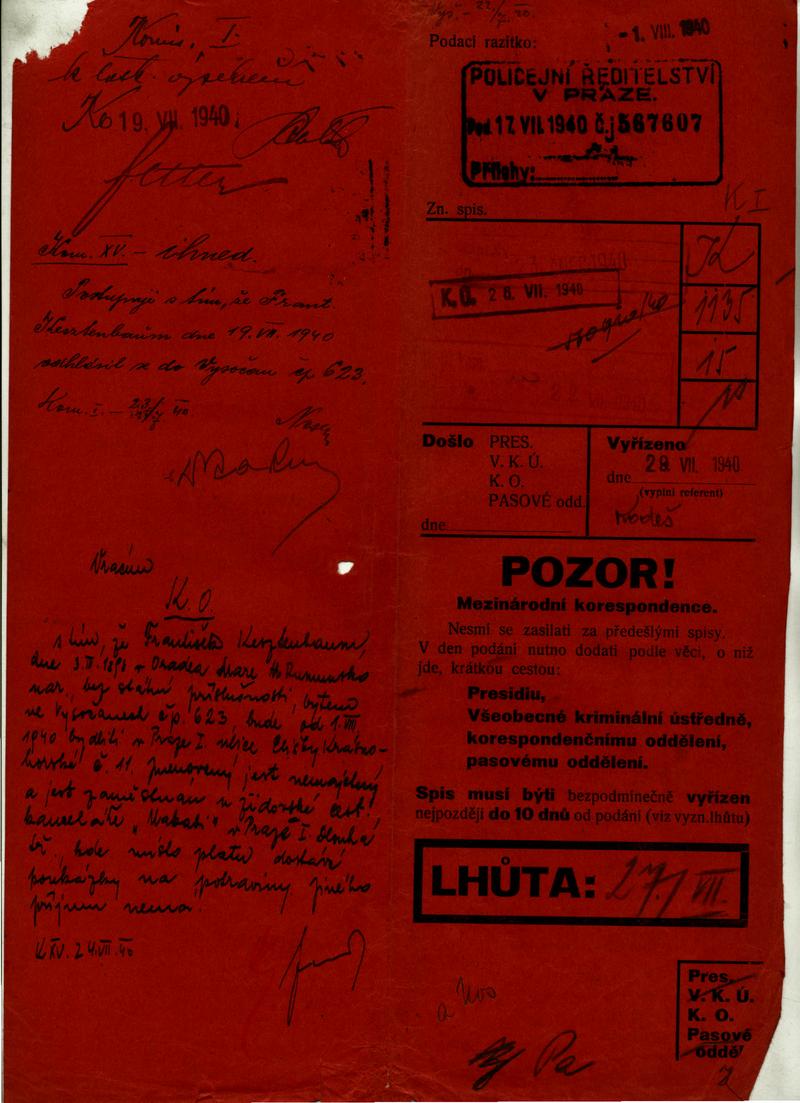 Komis. I.
k lask. výslechu
Ko 19. VII. 1940
Kom. XV. – ihned.
Postupuji s tím, že Frant.
Kesztenbaum dne 19. VII. 1940
odhlásil se do Vysočan čp 623.
Kom. I. –
Vracím
K. O.
s tím, že František Kesztenbaum,
dne 3. III. 1898 v Oradea Mare Rumunsko
nar., bez státní příslušnosti, bytem
ve Vysočanech čp. 623, bude od 1. VIII.
1940 bydleti v Praze I. ulice Elišky Krásno-
horské č. 11. Jmenovaný jest nemajetný
a jest zaměstnán u židovské cest.
kanceláře v Praze I. Dlouhá
tř., kde místo platu dostává
poukázky na potraviny jiného
příjmu nemá.
K XV. 24. VII. 40
Podací razítko:
- 1. VIII. 1940
POLICEJNÍ ŘEDITELSTVÍ
V PRAZE.
Pod. 17. VII. 1940 č.j 567607
Přílohy:
K I
Zn. spis.
K
1935
15
K. O. 26. VII. 1940
Došlo PRES.
V. K. Ú.
K. O.
PASOVÉ odd.
dne
Vyřízeno
dne 29. VII. 1940
(vyplní referent)
Kodeš
POZOR!
Mezinárodní korespondence.
Nesmí se zasílati za předešlými spisy.
V den podání nutno dodati podle věci, o niž
jde, krátkou cestou:
Presidiu,
Všeobecné kriminální ústředně,
korespondenčnímu oddělení,
pasovému oddělení.
Spis musí býti bezpodmínečně vyřízen
nejpozději do 10 dnů od podání (viz vyzn. lhůtu)
LHŮTA: 27./VII.
Pres.
V. K. Ú.
K. O.
Pasové
oddě